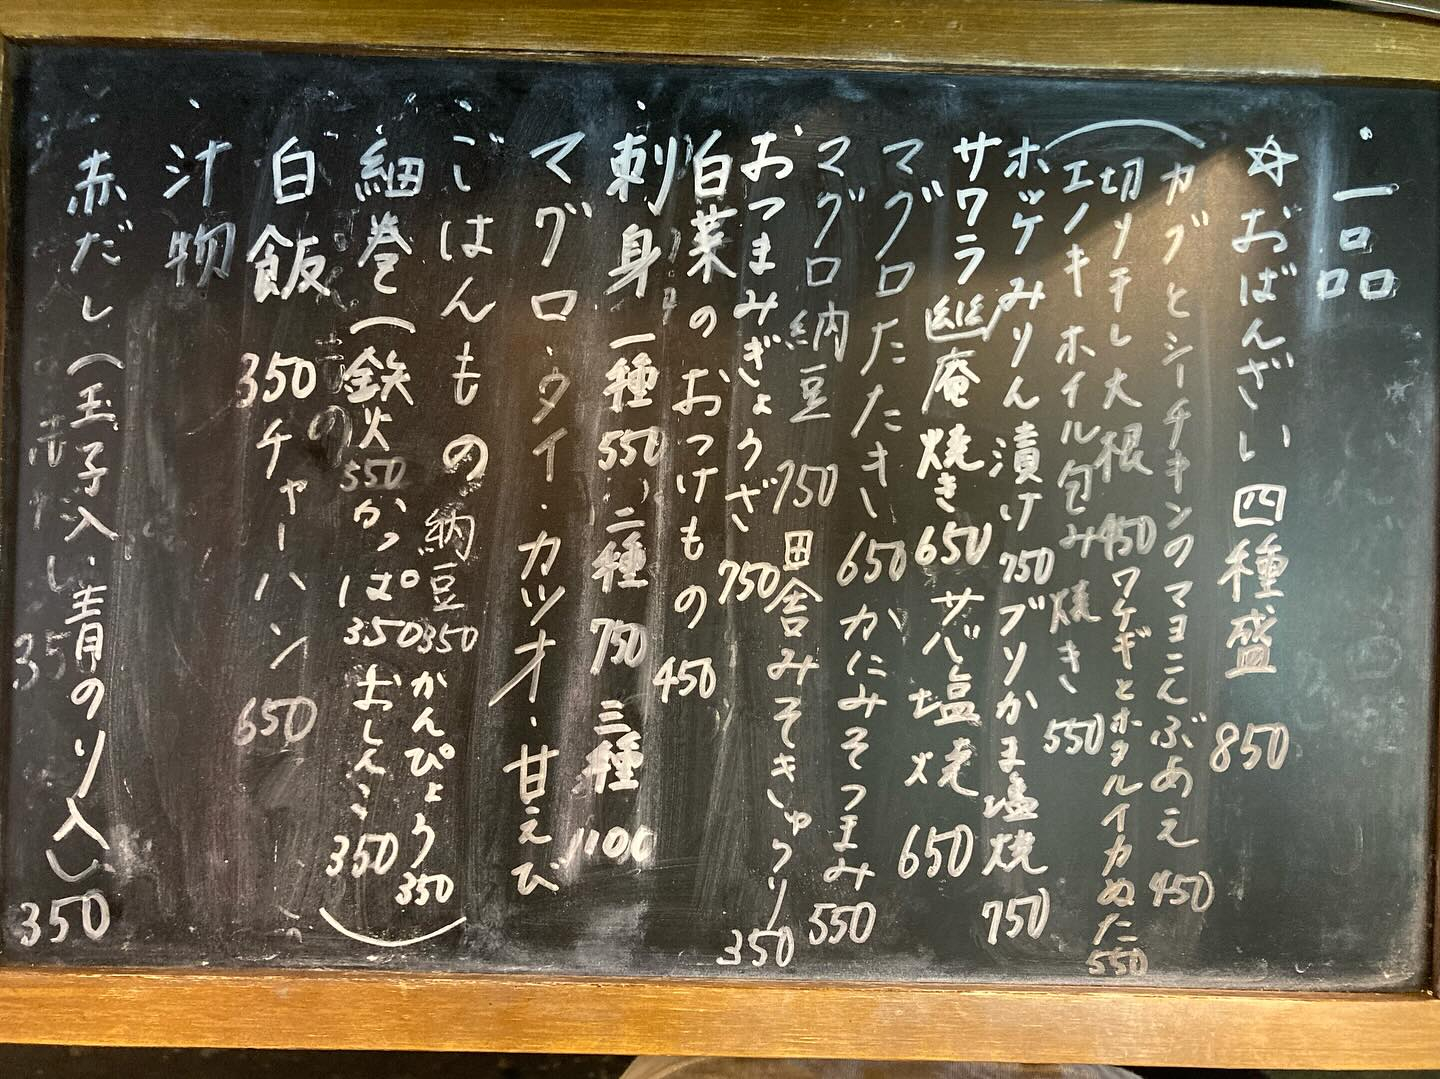 ・一品
☆おばんざい四種盛 850
カブとシーチキンのマヨこんぶあえ 450
切り干し大根 450 ワケギとホタルイカぬた 550
エノキホイル包み焼き 550
ホッケみりん漬け 750 ブリかま塩焼 750
サワラ幽庵焼き 650 サバ塩焼 650
マグロたたき 650 かにみそつまみ 550
マグロ納豆 750 田舎みそきゅうり 350
おつまみぎょうざ 750
白菜のおつけもの 450
・刺身 一種 550 二種 750 三種 1100
マグロ・タイ・カツオ・甘えび
・ごはんもの
細巻(鉄火 550 かっぱ 350 おしんこ 350
納豆 350 かんぴょう 350)
白飯 350 チャーハン 650
・汁物
赤だし(玉子入り・青のり入り) 350